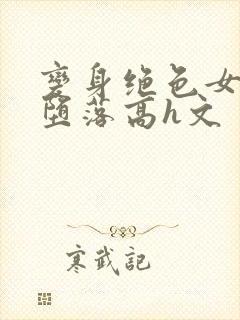 变身绝色女
堕落高h文
寒武記